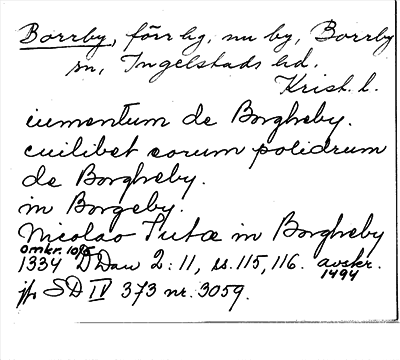 Borrby, förr lg, nu by, Borrby
sn, Ingelstads hd.
Krist. l.
iumentum de Borgheby.
cuilibet eorum polidrum
de Borgheby.
in Borgeby.
Nicolao Tutæ in Borgheby
omkr. 10/5
1334 DDan 2:11, ss. 115, 116. avskr.
1494
jfr SD IV 373 nr. 3059.